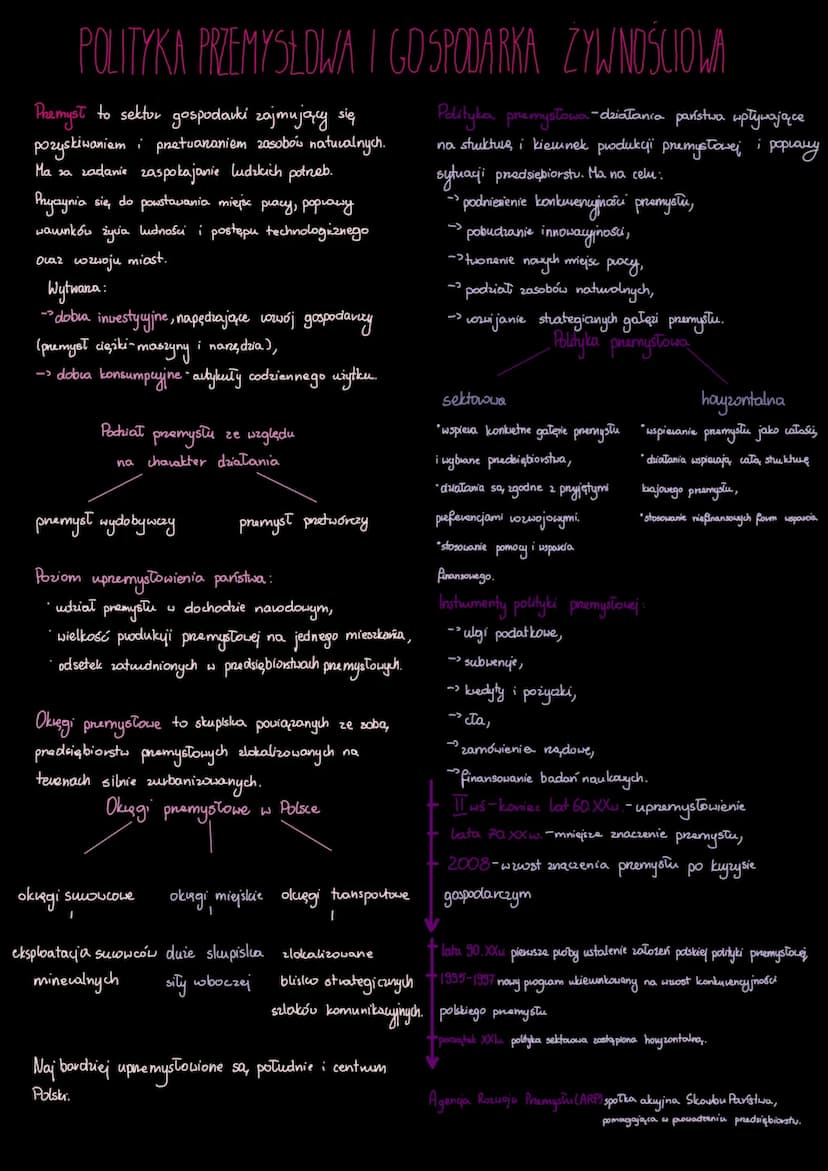 POLITYKA PRZEMYSŁOWA I GOSPODARKA ŻYWNOŚCIOWA
Przemysł to sektor gospodarki zajmujący się
pozyskiwaniem i przetwarzaniem zasobów naturalnych.
Ma za zadanie zaspokajanie ludzkich potrzeb.
Przyczynia się do powstawania miejsc pracy, poprawy
warunków życia ludności i postępu technologicznego
oraz rozwoju miast.
Wytwarza:
-> dobra inwestycyjne, napędzające rozwój gospodarczy
(przemysł ciężki-maszyny i narzędzia),
-> dobra konsumpcyjne - artykuły codziennego użytku.
Podział przemysłu ze względu
na charakter działania
przemysł wydobywczy
przemysł przetwórczy
Poziom uprzemysłowienia państwa:
· udział przemysłu w dochodzie narodowym,
· wielkość produkcji przemysłowej na jednego mieszkańca,
· odsetek zatrudnionych w przedsiębiorstwach przemysłowych.
Okręgi przemysłowe to skupiska powiązanych ze sobą
przedsiębiorstw przemysłowych zlokalizowanych na
terenach silnie zurbanizowanych.
Okręgi przemysłowe w Polsce
okręgi surowcowe
okręgi miejskie
okręgi transportowe
eksploatacja surowców
mineralnych
duże skupiska
siły roboczej
zlokalizowane
blisko strategicznych
szlaków komunikacyjnych.
Najbardziej uprzemysłowione są południe i centrum
Polski.
Polityka przemysłowa - działania państwa wpływające
na strukturę i kierunek produkcji przemysłowej i poprawy
sytuacji przedsiębiorstw. Ma na celu:
-> podniesienie konkurencyjności przemysłu,
-> pobudzanie innowacyjności,
-> tworzenie nowych miejsc pracy,
-> podział zasobów naturalnych,
-> rozwijanie strategicznych gałęzi przemysłu.
Polityka przemysłowa
sektorowa
horyzontalna
• wspiera konkretne gałęzie przemysłu
i wybrane przedsiębiorstwa,
• działania są zgodne z przyjętymi
preferencjami rozwojowymi.
• stosowanie pomocy i wsparcia
finansowego.
• wspieranie przemysłu jako całości,
• działania wspierają całą strukturę
krajowego przemysłu,
• stosowanie niefinansowych form wsparcia.
Instrumenty polityki przemysłowej:
-> ulgi podatkowe,
-> subwencje,
-> kredyty i pożyczki,
-> cła,
-> zamówienia rządowe,
-> finansowanie badań naukowych.
II wś - koniec lat 60. XXw. - uprzemysłowienie
lata 70. XX w. - mniejsze znaczenie przemysłu,
2008 - wzrost znaczenia przemysłu po kryzysie
gospodarczym
lata 90. XXw. pierwsze próby ustalenie założeń polskiej polityki przemysłowej,
1995-1997 nowy program ukierunkowany na wzrost konkurencyjności
polskiego przemysłu
początek XXIw. polityka sektorowa zastąpiona horyzontalną.
Agencja Rozwoju Przemysłu (ARP) spółka akcyjna Skarbu Państwa,
pomagająca w prowadzeniu przedsiębiorstw.